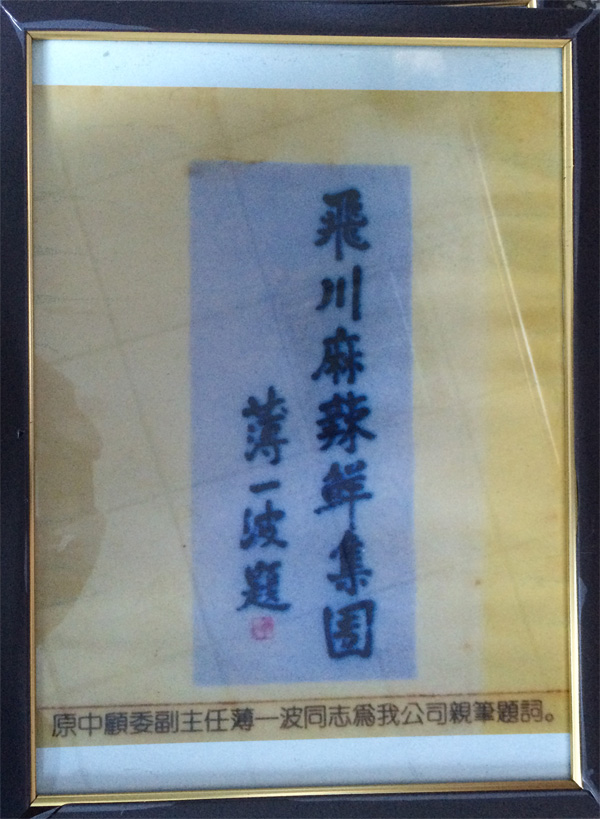 飛川麻辣鮮集團
薄一波題
原中顧委副主任薄一波同志爲我公司親筆題詞。